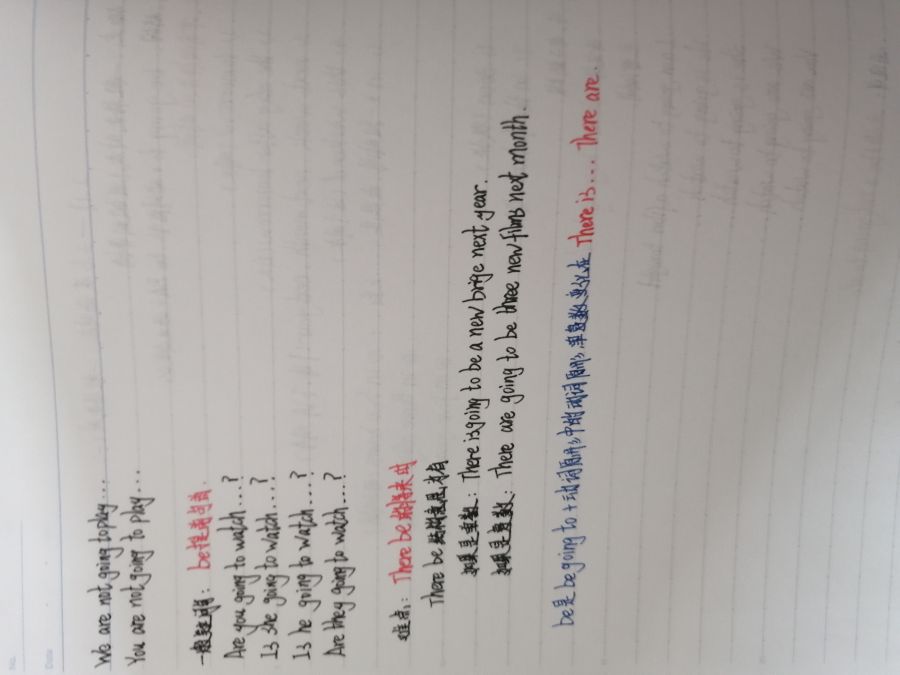 No.
Date
We are not going to play...
You are not going to play...
一般疑问: be提到句首.
Are you going to watch...?
Is she going to watch...?
Is he going to watch...?
Are they going to watch...?
难点: There be 的将来时
There be 结构意思是有
如果是单数: There is going to be a new brige next year.
如果是复数. There are going to be three new films next month.
be是 be going to + 动词原形中的动词原形, 单复数变化在 There is... There are.